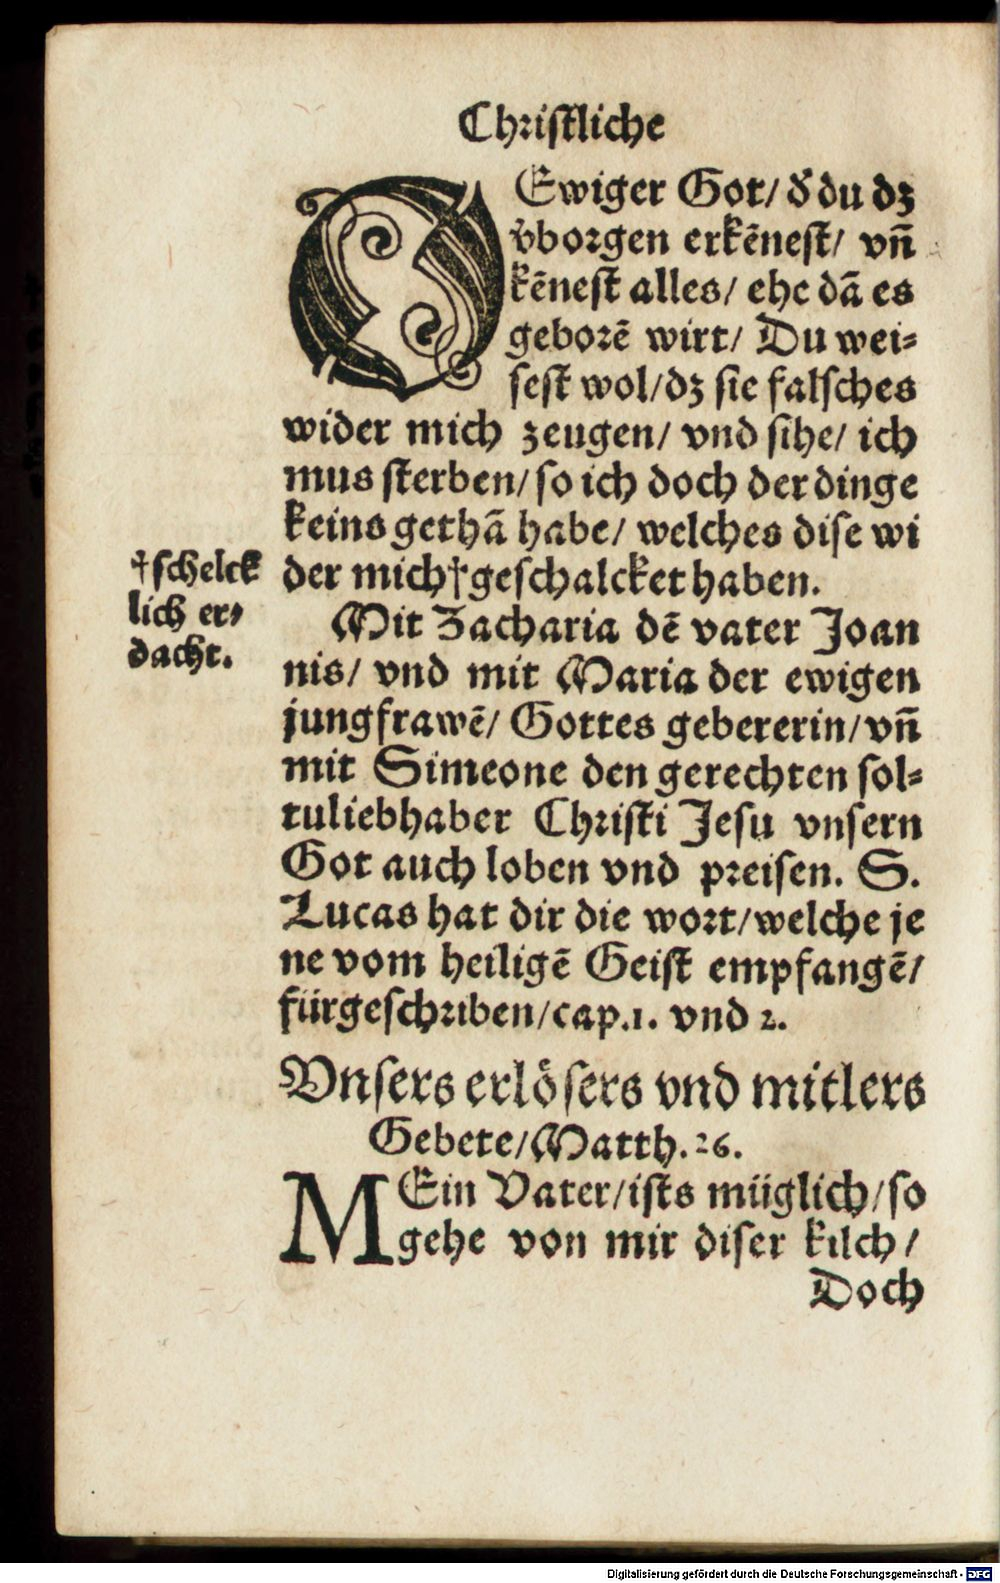 Christliche
OEwiger Got/ d̕ du dz
v̕borgen erkēnest/ vn̄
kēnest alles/ ehe dā es
geborē wirt/ Du wei⸗
sest wol/dz sie falsches
wider mich zeugen/ vnd sihe/ ich
mus sterben/ so ich doch der dinge
keins gethā habe/ welches dise wi
der mich†geschalcket haben.
†schelck
lich er⸗
dacht.
Mit Zacharia dē vater Joan
nis/ vnd mit Maria der ewigen
jungfrawē/ Gottes gebererin/ vn̄
mit Simeone den gerechten sol⸗
tuliebhaber Christi Jesu vnsern
Got auch loben vnd preisen. S.
Lucas hat dir die wort/welche je
ne vom heiligē Geist empfangē/
fürgeschriben/cap.1. vnd 2.
Vnsers erlösers vnd mitlers
Gebete/Matth.26.
MEin Vater/ists müglich/so
gehe von mir diser kilch/
Doch
Digitalisierung gefördert durch die Deutsche Forschungsgemeinschaft - DFG